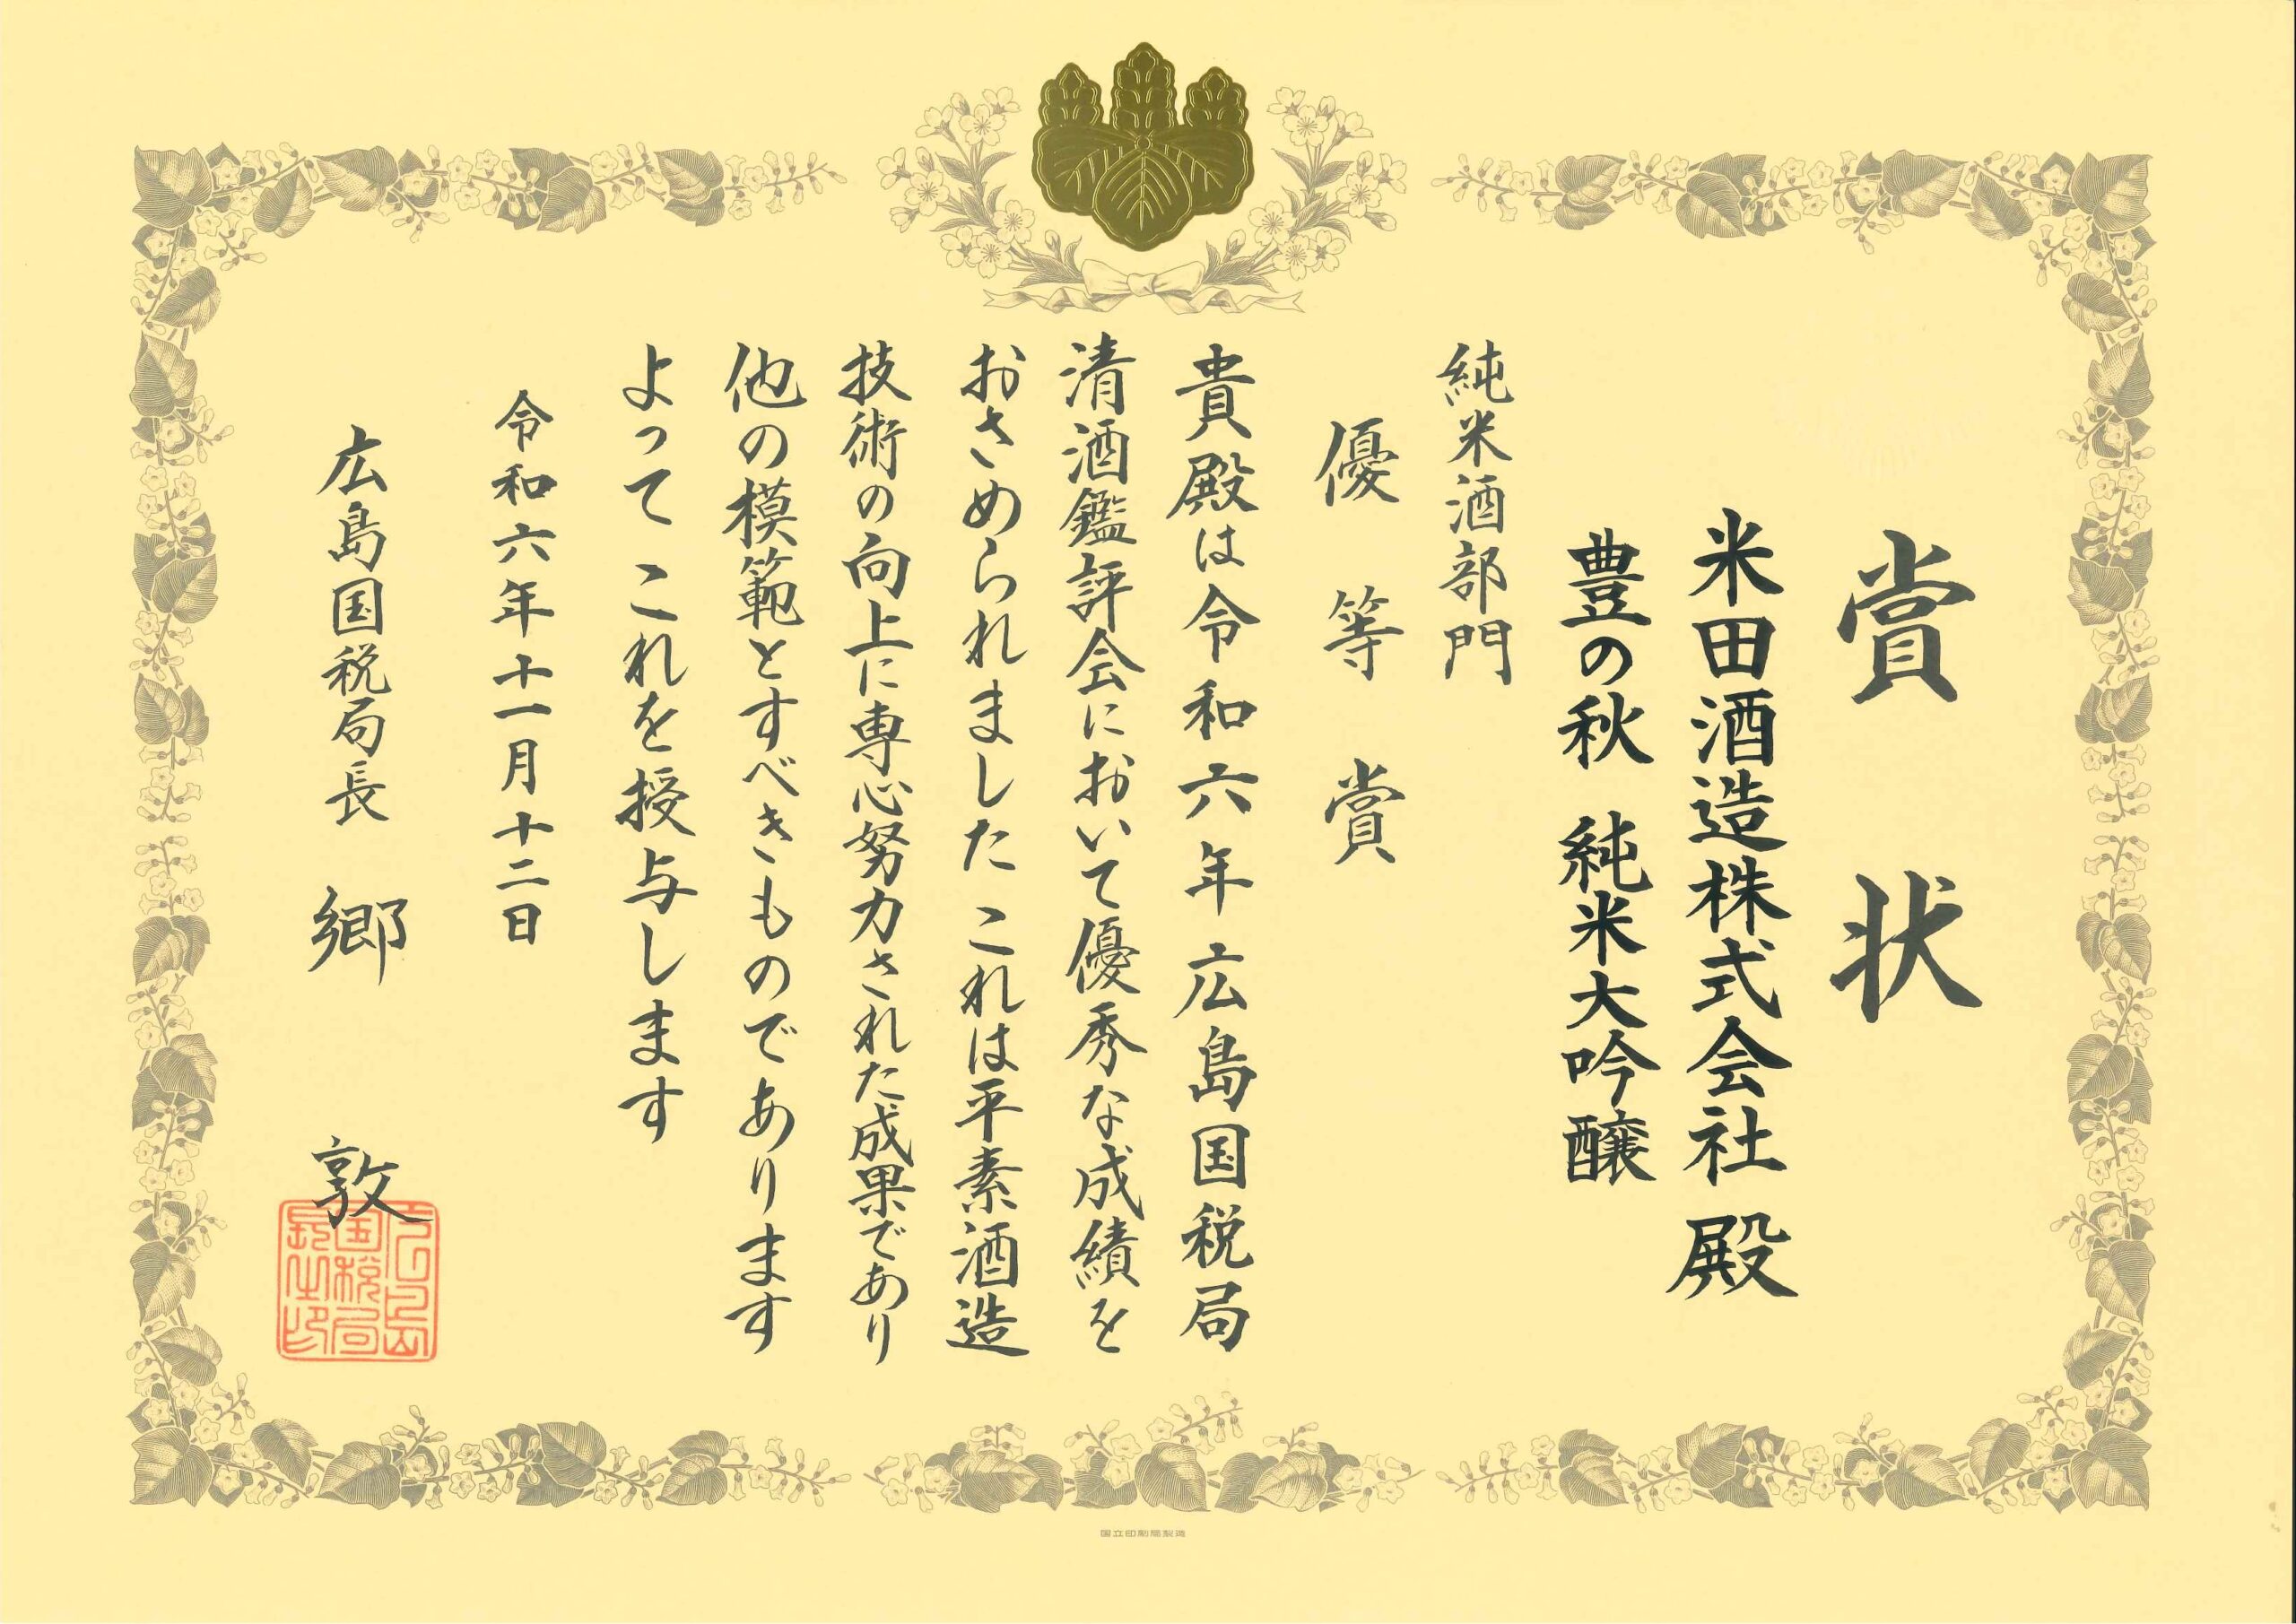 賞状
米田酒造株式会社 殿
豊の秋 純米大吟醸
純米酒部門
優等賞
貴殿は令和六年広島国税局
清酒鑑評会において優秀な成績を
おさめられました これは平素酒造
技術の向上に専心努力された成果であり
他の模範とすべきものであります
よって これを授与します
令和六年十一月十二日
広島国税局長 郷 敦
広島
国税局
長之印
国立印刷局製造